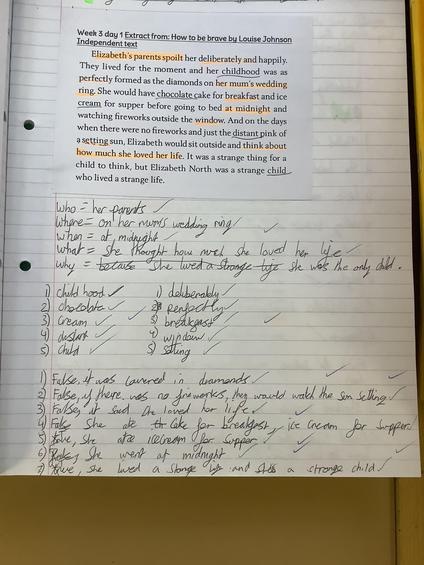 Week 3 day 1 Extract from: How to be brave by Louise Johnson
Independent text
Elizabeth's parents spoilt her deliberately and happily.
They lived for the moment and her childhood was as
perfectly formed as the diamonds on her mum's wedding
ring. She would have chocolate cake for breakfast and ice
cream for supper before going to bed at midnight and
watching fireworks outside the window. And on the days
when there were no fireworks and just the distant pink of
a setting sun, Elizabeth would sit outside and think about
how much she loved her life. It was a strange thing for a
child to think, but Elizabeth North was a strange child
who lived a strange life.
Who = her parents
Where = on her mum's wedding ring
when = at midnight
what = she thought how much she loved her life
why = because she lived a strange life she was the only child.
1) child hood 1) deliberately
2) chocolate 2) perfectly
3) cream 3) breakfast
4) distant 4) window
5) child 5) setting
1) False, it was covered in diamonds
2) False, if there was no fireworks, they would watch the sun setting
3) False, it said she loved her life
4) False She ate cake for breakfast, ice cream for supper.
5) True, she ate icecream for supper
6) She went at midnight
7) True, she lived a strange life and a strange child